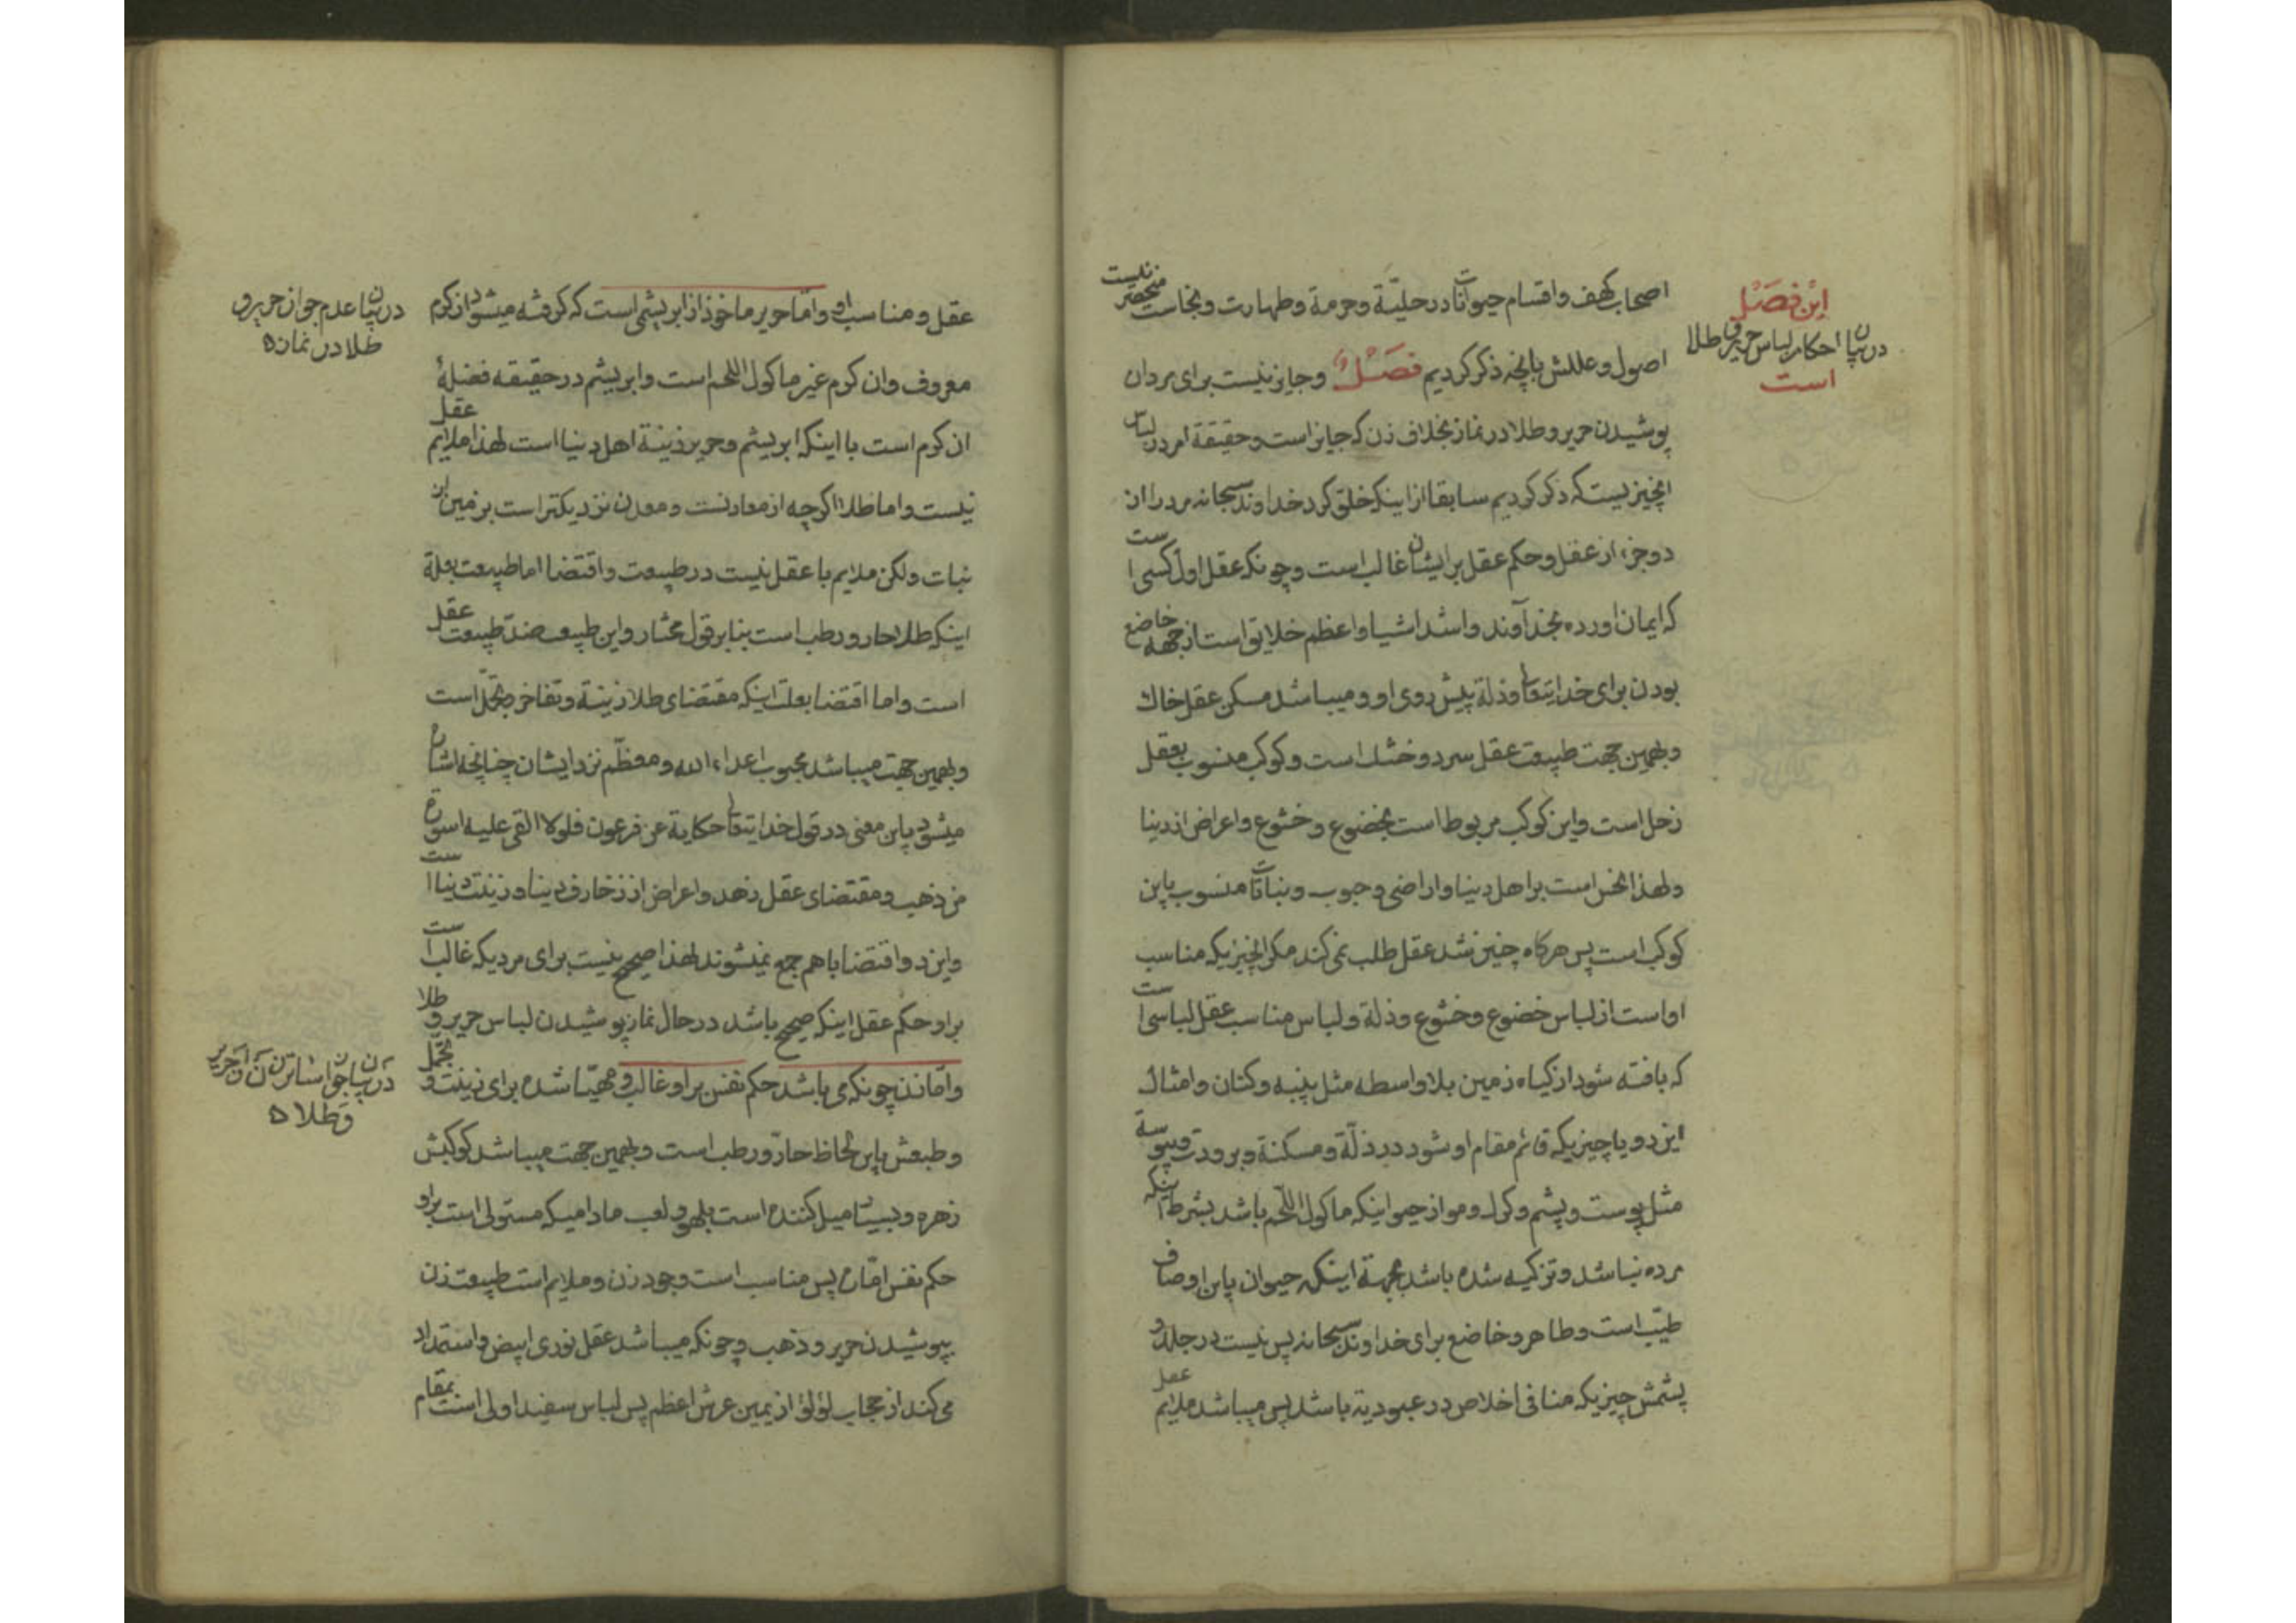 این فصل
در بیان احکام لباس حریر و طلا
است
اصحاب کهف و اقسام حیوانات در حلیّة و حرمة و طهارت و نجاست منحصر نیست
اصول و عللش بانچه ذکر کردیم فصل و جایز نیست برای مردان
پوشیدن حریر و طلا در نماز بخلاف زن که جایز است و حقیقة امر در لباس
انچیزیست که ذکر کردیم سابقا از اینکه خلق کرد خداوند سبحانه مرد را از
دو جزء از عقل و حکم عقل بر ایشان غالب است و چونکه عقل اول کسی است
که ایمان اورده بخداوند و اشد اشیا و اعظم خلایق است از جهه خاضع
بودن برای خدایتعالی و ذلة پیش روی او و میباشد مسکن عقل خاک
و بهمین جهت طبیعت عقل سرد و خشک است و کوکب منسوب بعقل
زحل است و این کوکب مربوط است بخضوع و خشوع و اعراض از دنیا
و لهذا نحس است بر اهل دنیا و اراضی و حبوب و نباتات منسوب باین
کوکب است پس هرکاه چنین شد عقل طلب نمی کند مکر انچیزیکه مناسب
او است از لباس خضوع و خشوع و ذلة و لباس مناسب عقل لباسی است
که بافته شود از کیاه زمین بلا واسطه مثل پنبه و کتان و امثال
این دو یا چیزیکه قائم مقام او شود در ذلّة و مسکنة و برودت و یبوسة
مثل پوست و پشم و کرک و مو از حیوانیکه ماکول اللّحم باشد بشرط اینکه
مرده نباشد و تزکیه شده باشد بجهة اینکه حیوان باین اوصاف
طیّب است و طاهر و خاضع برای خداوند سبحانه پس نیست در جلد و
پشمش چیزیکه منافی اخلاص در عبودیة باشد پس میباشد ملایم عقل
در بیان عدم جواز حریر و
طلا در نماز ه
عقل و مناسب او و امّا حریر ماخوذ از ابریشمی است که کرفته میشود از کرم
معروف و ان کرم غیر ماکول اللحم است و ابریشم در حقیقه فضلهٔ
ان کرم است با اینکه ابریشم و حریر زینة اهل دنیا است لهذا ملایم عقل
نیست و اما طلا اکرچه از معادنست و معدن نزدیکتر است بزمین از
نبات ولکن ملایم با عقل نیست در طبیعت و اقتضا اما طبیعت بعلة
اینکه طلا حار و رطب است بنابر قول مختار و این طبیعت ضدّ طبیعت عقل
است و اما اقتضا بعلت اینکه مقتضای طلا زینة و تفاخر و تجمّل است
و بهمین جهت میباشد محبوب اعداء الله و معظّم نزد ایشان چنانچه اشاره
میشود باین معنی در قول خدایتعالی حکایة عن فرعون فلولا القی علیه اسورة
من ذهب و مقتضای عقل زهد و اعراض از زخارف دنیا و زینت دنیا است
و این دو اقتضا باهم جمع نمیشوند لهذا صحیح نیست برای مردیکه غالب است
بر او حکم عقل اینکه صحیح باشد در حال نماز پوشیدن لباس حریر و طلا
و امّا زن چونکه می باشد حکم نفس بر او غالب و مهیّا شده برای زینت و تجمل
و طبعش باین لحاظ حارّ و رطب است و بهمین جهت میباشد کوکبش
زهره و بسیار میل کننده است بلهو و لعب مادامیکه مستولی است بر او
حکم نفس امّاره پس مناسب است وجود زن و ملایم است طبیعت زن
بپوشیدن حریر و ذهب و چونکه میباشد عقل نوری ابیض و استمداد
می کند از حجاب لؤلؤ از یمین عرش اعظم پس لباس سفید اولی است بمقام
و طلا ه